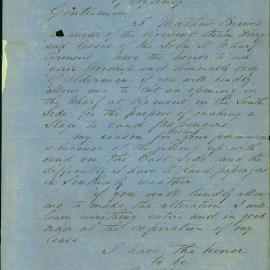 of Sydney
Gentlemen
I Matthew Byrnes
Director of the Pyrmont Steam Ferry
and lessee of the John St Wharf
Pyrmont have the honor to ask
your Worship and honorable body
of Aldermen if you will kindly
allow me to cut an opening in
the Wharf at Pyrmont in the South
Side for the purpose of making a
Stage to land passengers
my reason for your permission
is because of the filling up with
sand on the East Side and the
difficulty I have to land passengers
in Southerly weather
If you will kindly allow
me to make the alteration I will
leave everything entire and in good
order at the expiration of my
lease
I have the honor
to be